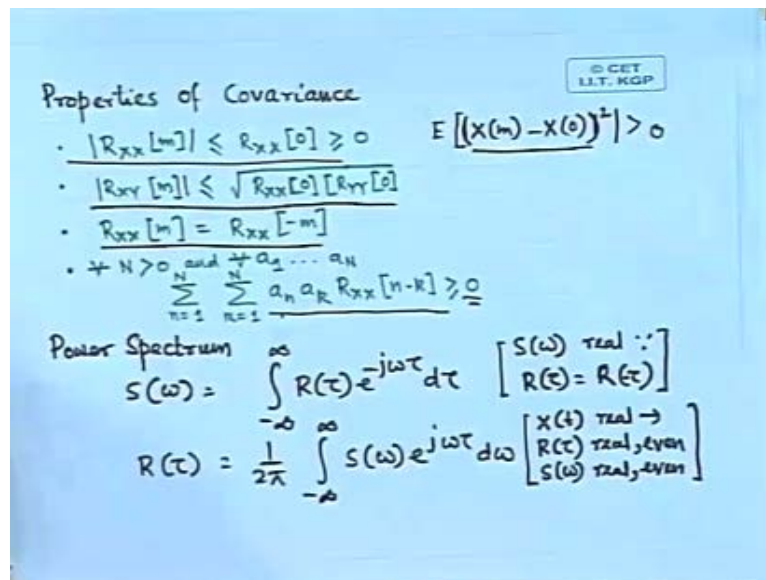 © CET
I.I.T. KGP
Properties of Covariance
· |R_XX[m]| ≤ R_XX[0] ≥ 0
E[(X(m) - X(0))²| > 0
· |R_XY[m]| ≤ √R_XX[0] [R_YY[0]
· R_XX[m] = R_XX[-m]
· ∀ N>0 and ∀ a_1 ... a_N
N N
∑ ∑ a_n a_k R_XX[n-k] ≥ 0
n=1 n=1
Power Spectrum
S(ω) = ∫_{-∞}^{∞} R(τ) e^{-jωτ} dτ [S(ω) real ∵
R(τ) = R(-τ)]
R(τ) = 1/2π ∫_{-∞}^{∞} S(ω) e^{jωτ} dω [X(t) real →
R(τ) real, even
S(ω) real, even]